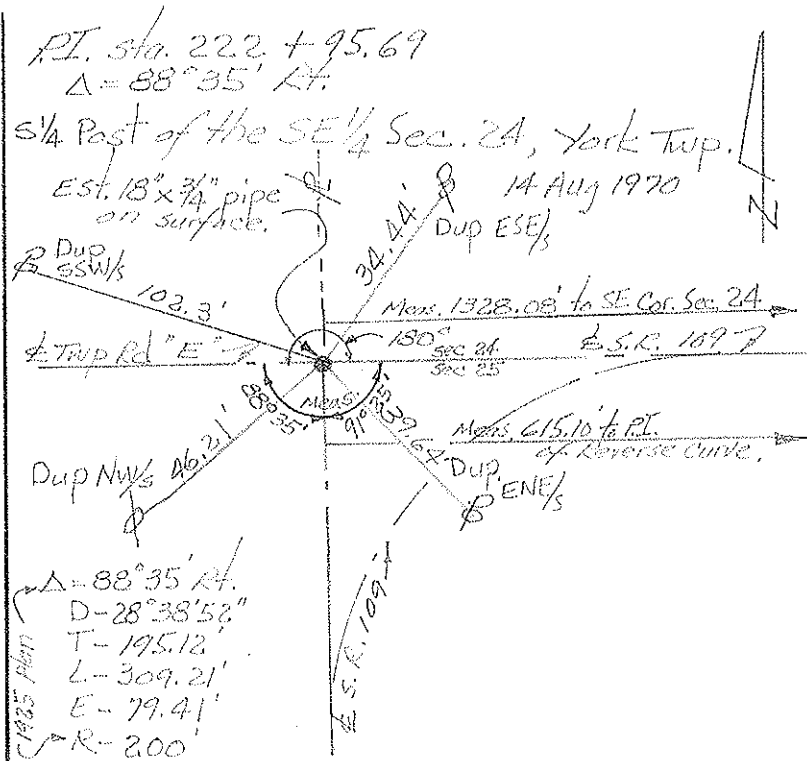 P.I. sta. 222 + 95.69
Δ = 88°35' Rt.
S1/4 Post of the SE1/4 Sec. 24, York Twp.
14 Aug 1970
Est. 18" x 3/4" pipe
on surface.
Dup ESE/s
34.44'
N
Dup
SSW/s
102.3'
Meas. 1328.08' to SE Cor. Sec. 24
℄ Twp Rd "E"
180°
Sec 24
Sec 25
℄ S.R. 109
88°35'
Meas.
91°25'
39.64'
Meas. 615.10' to P.I.
of Reverse Curve.
Dup NW/s
46.21'
Dup.
ENE/s
℄ S.R. 109
1925 Plan
Δ = 88°35' Rt.
D - 28°38'52"
T - 195.12'
L - 309.21'
E - 79.41'
R - 200'